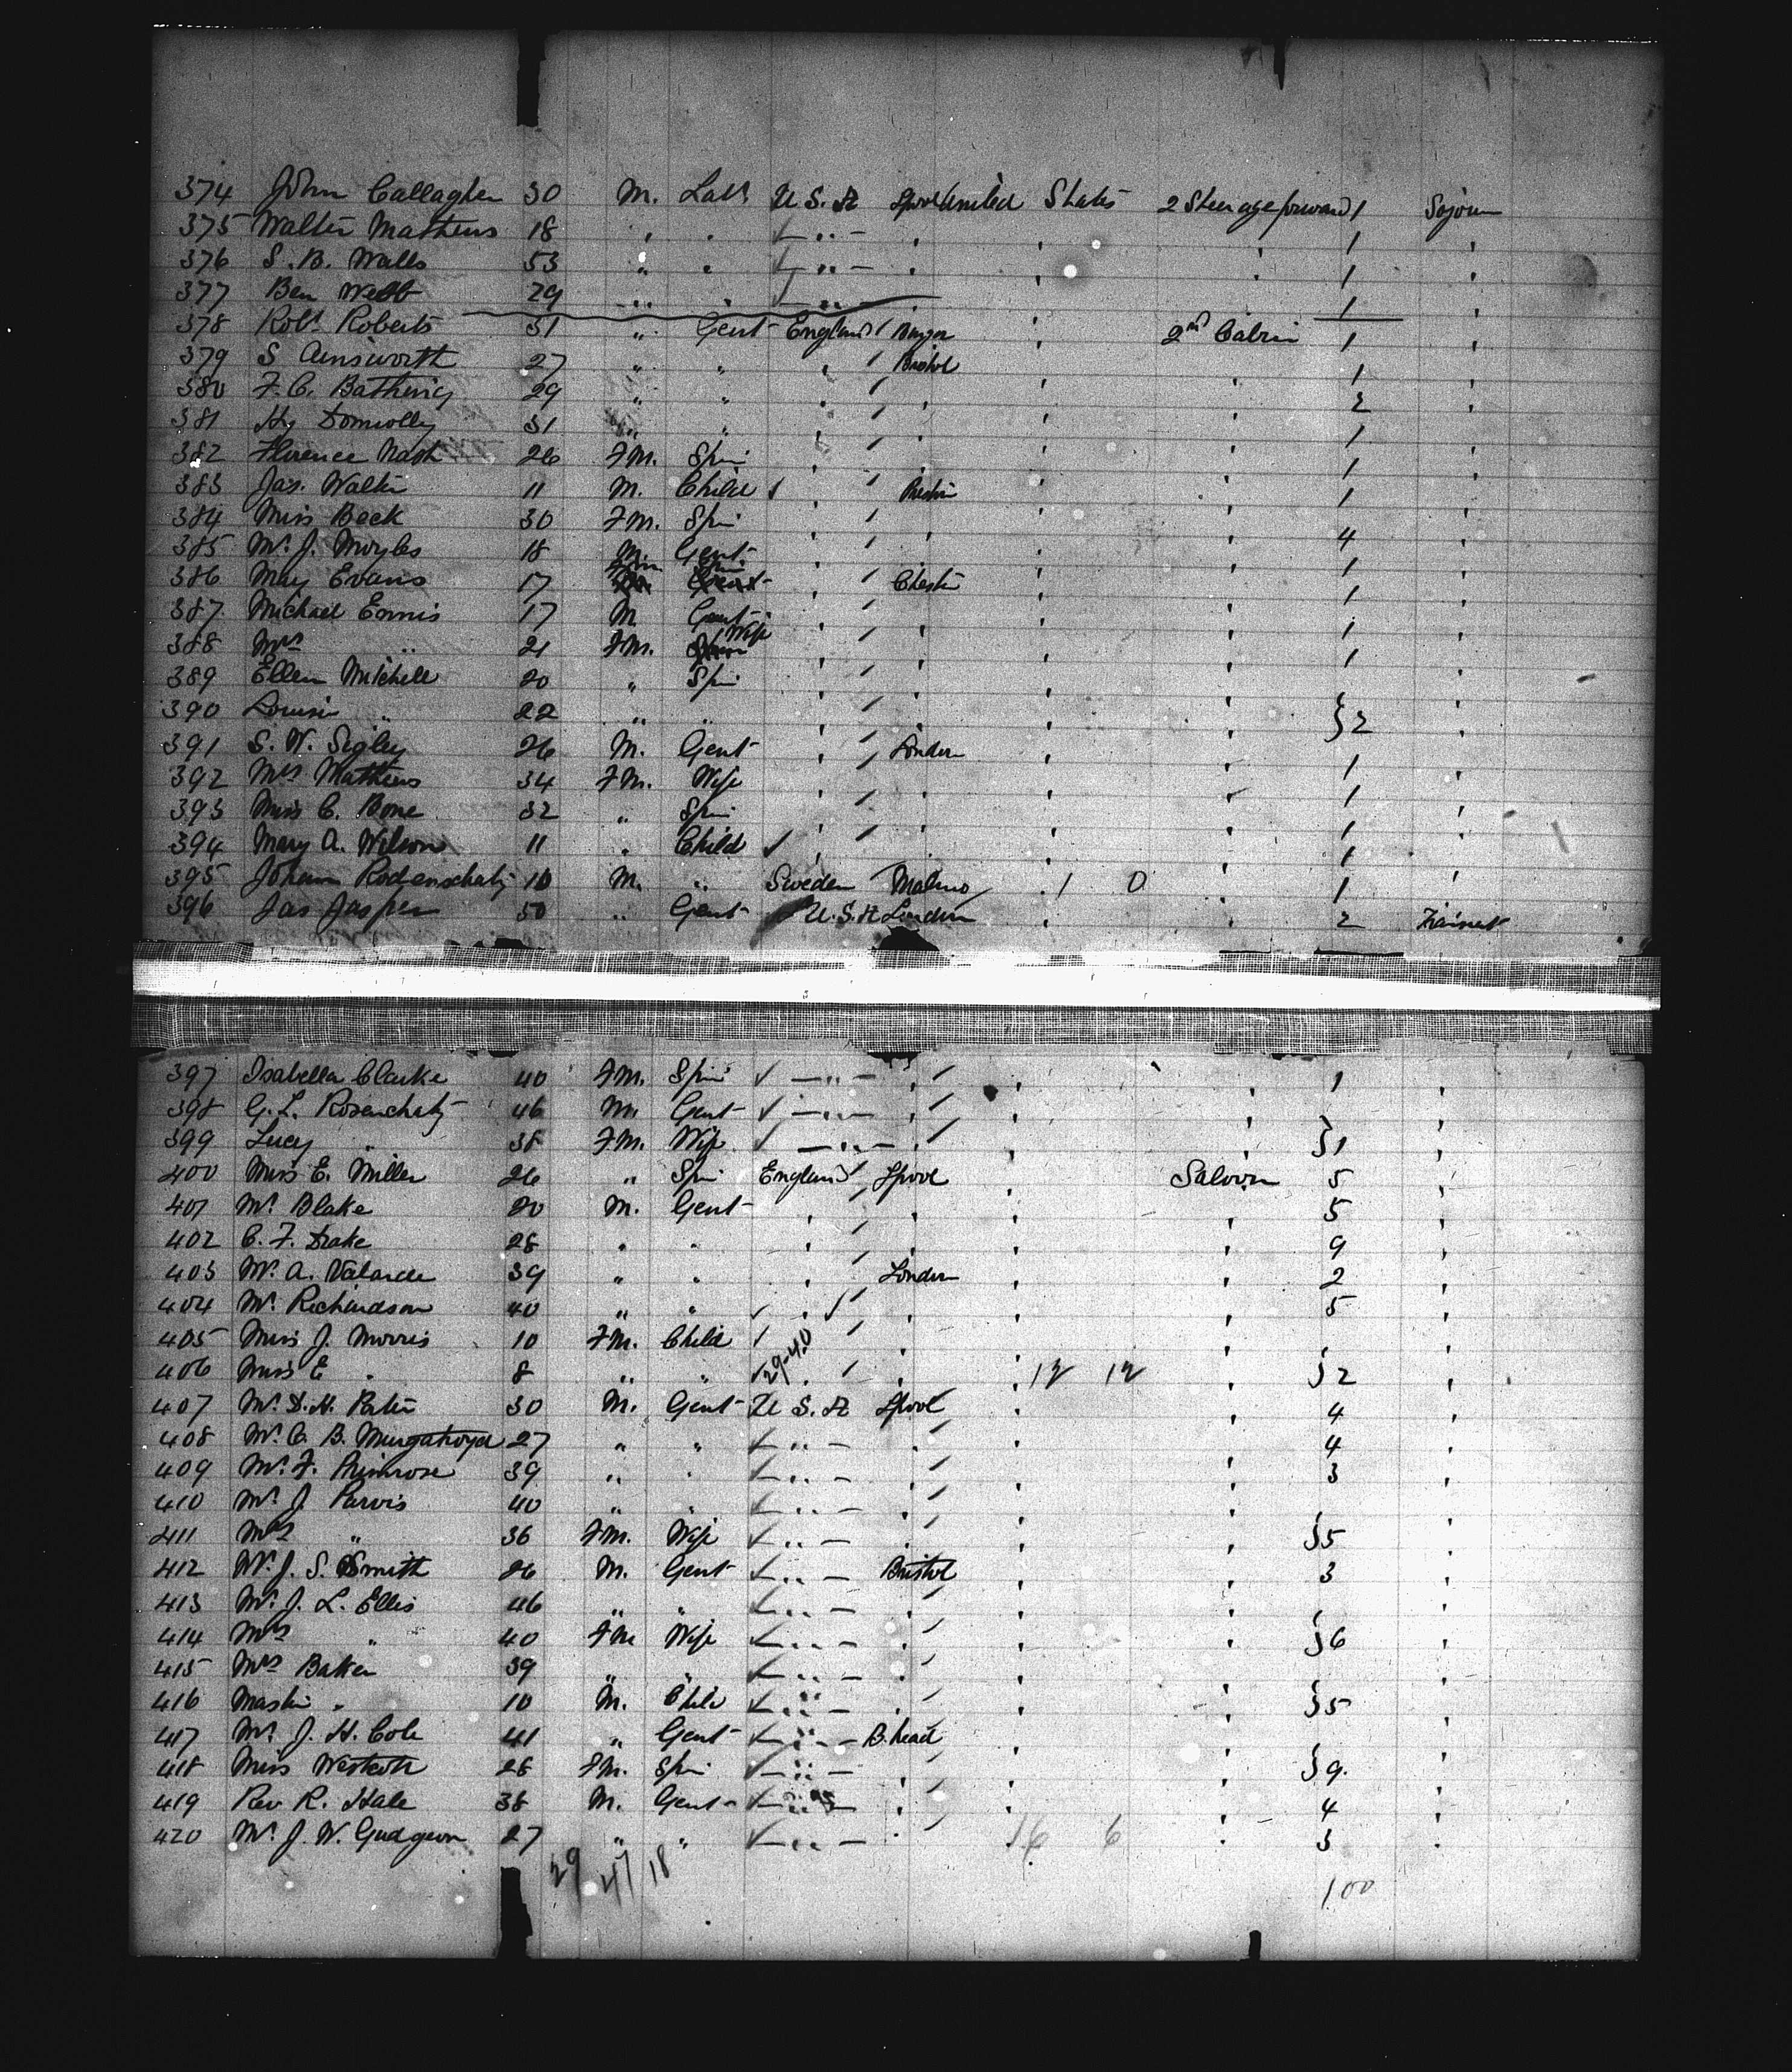 374 John Callaghen 30 M. Labr U.S.A Lpool United States 2 Steerage forward 1 Sojourn
375 Walter Mathews 18 " " " " ' 1 '
376 S. B. Walls 53 " " " " ' ' 1 '
377 Ben Webb 29 " " " 1
378 Robt Roberts 31 " Gent England Bangor ' 2nd Cabin 1 '
379 S Ainsworth 27 " " ' Bristol ' 1 '
380 F. C. Bathering 29 " " ' ' ' ' 2 '
381 Hy Donnolly 31 " " ' ' ' ' 1 '
382 Florence Nash 26 FM. Spin ' ' ' ' 1 '
383 Jas. Walter 11 M. Child ' Preston ' ' 1 '
384 Miss Beck 30 FM. Spin ' ' ' ' 4 '
385 Mr. J. Moyles 18 M. Gent ' ' ' ' 1 '
386 May Evans 17 Fm Spin ' Chester ' ' 1 '
387 Michael Ennis 17 M. Gent ' ' ' ' 1 '
388 Mrs " 21 FM. Wife ' ' ' ' 1 '
389 Ellen Mitchell 20 " Spin ' ' ' '
390 Louisa " 22 " " ' ' ' ' } 2 '
391 S. W. Sigley 26 M. Gent ' London ' ' 1 '
392 Mrs Mathews 34 FM. Wife ' ' ' ' 1 '
393 Miss C. Bone 32 " Spin ' ' ' ' 1 '
394 Mary A. Wilson 11 " Child ' ' ' ' 1 '
395 Johann Rodenschatz 10 M. " Sweden Malmo 1 0 ' 1 '
396 Jas Jasper 50 " Gent U.S.A London ' ' 2
397 Isabella Clarke 40 FM. Spin " ' ' ' 1 '
398 G. L. Rosenchatz 46 M. Gent " ' ' ' '
399 Lucy " 38 FM. Wife " ' ' ' } 1 '
400 Miss E. Miller 26 " Spin England Lpool ' Saloon 5 '
401 Mr. Blake 20 M. Gent ' ' ' ' 5 '
402 C. F. Drake 28 " " ' ' ' ' 9 '
403 Mr. A. Valarde 39 " " ' London ' ' 2 '
404 Mr. Richardson 40 " " ' ' ' ' 5 '
405 Miss J. Morris 10 FM. Child ' '
406 Miss E " 8 " " 29-40 ' 12 12 ' } 2 '
407 Mr. D. H. Pater 30 M. Gent U.S.A Lpool ' ' 4 '
408 Mr. C. B. Murgatroyd 27 " " " ' ' ' 4 '
409 Mr. F. Primrose 39 " " " ' ' ' 3 '
410 Mr. J Parvis 40 " " " ' ' ' '
411 Mrs " 36 FM. Wife " ' ' ' } 5 '
412 Mr. J. S. Smith 26 M. Gent " Bristol ' ' 3 '
413 Mr. J. L. Ellis 46 " " " ' ' ' '
414 Mrs " 40 Fm Wife " ' ' ' } 6 '
415 Mrs Baker 39 " " " ' ' ' '
416 Master " 10 M. Child " ' ' ' } 5 '
417 Mr. J. H. Cole 41 " Gent " B.head ' ' '
418 Miss Westcott 28 FM. Spin " ' ' ' } 9. '
419 Rev R. Hale 38 M. Gent " ' ' ' 4 '
420 Mr. J. W. Gudgeon 27 " " " ' 16 6 ' 3 '
29 47 18
100